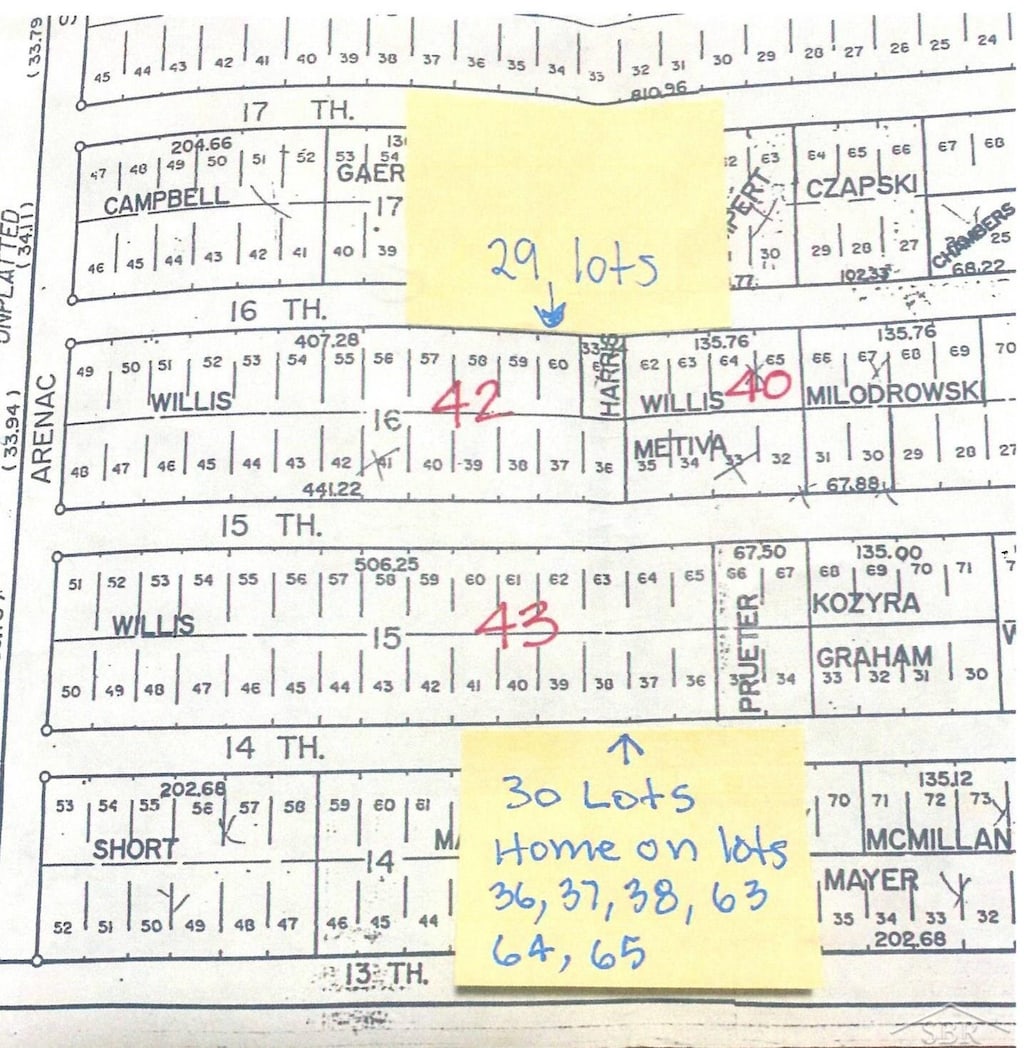 (33.79
45 44 43 42 41 40 39 38 37 36 35 34 33 32 31 30 29 28 27 26 25 24
810.96
17 TH.
204.66
47 48 49 50 51 52 53 54 63 64 65 66 67 68
CAMPBELL GAER CZAPSKI
17
46 45 44 43 42 41 40 39 30 29 28 27 CHAMBERS 25
.77 102.33 68.22
UNPLATTED
(34.11)
29 lots
16 TH.
407.28 135.76 135.76
49 50 51 52 53 54 55 56 57 58 59 60 62 63 64 65 66 67 68 69 70
WILLIS 42 HARRIS WILLIS 40 MILODROWSKI
16
METIVA
48 47 46 45 44 43 42 41 40 39 38 37 36 35 34 33 32 31 30 29 28 27
441.22 67.88
(33.94)
ARENAC
15 TH.
506.25 67.50 135.00
51 52 53 54 55 56 57 58 59 60 61 62 63 64 65 66 67 68 69 70 71
WILLIS 43 PRUETER KOZYRA
15
GRAHAM
50 49 48 47 46 45 44 43 42 41 40 39 38 37 36 34 33 32 31 30
14 TH.
202.68 135.12
53 54 55 56 57 58 59 60 61 70 71 72 73
SHORT MCMILLAN
14
MAYER
52 51 50 49 48 47 46 45 44 35 34 33 32
202.68
30 Lots
Home on lots
36, 37, 38, 63
64, 65
13 TH.
SBR